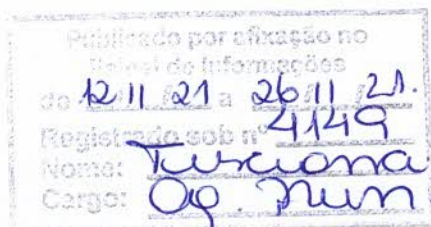 Publicado por afixação no
Painel de Informações
de 12 11 21 a 26 11 21.
Registrado sob nº 4149
Nome: Tusciona
Cargo: Ag. Mun